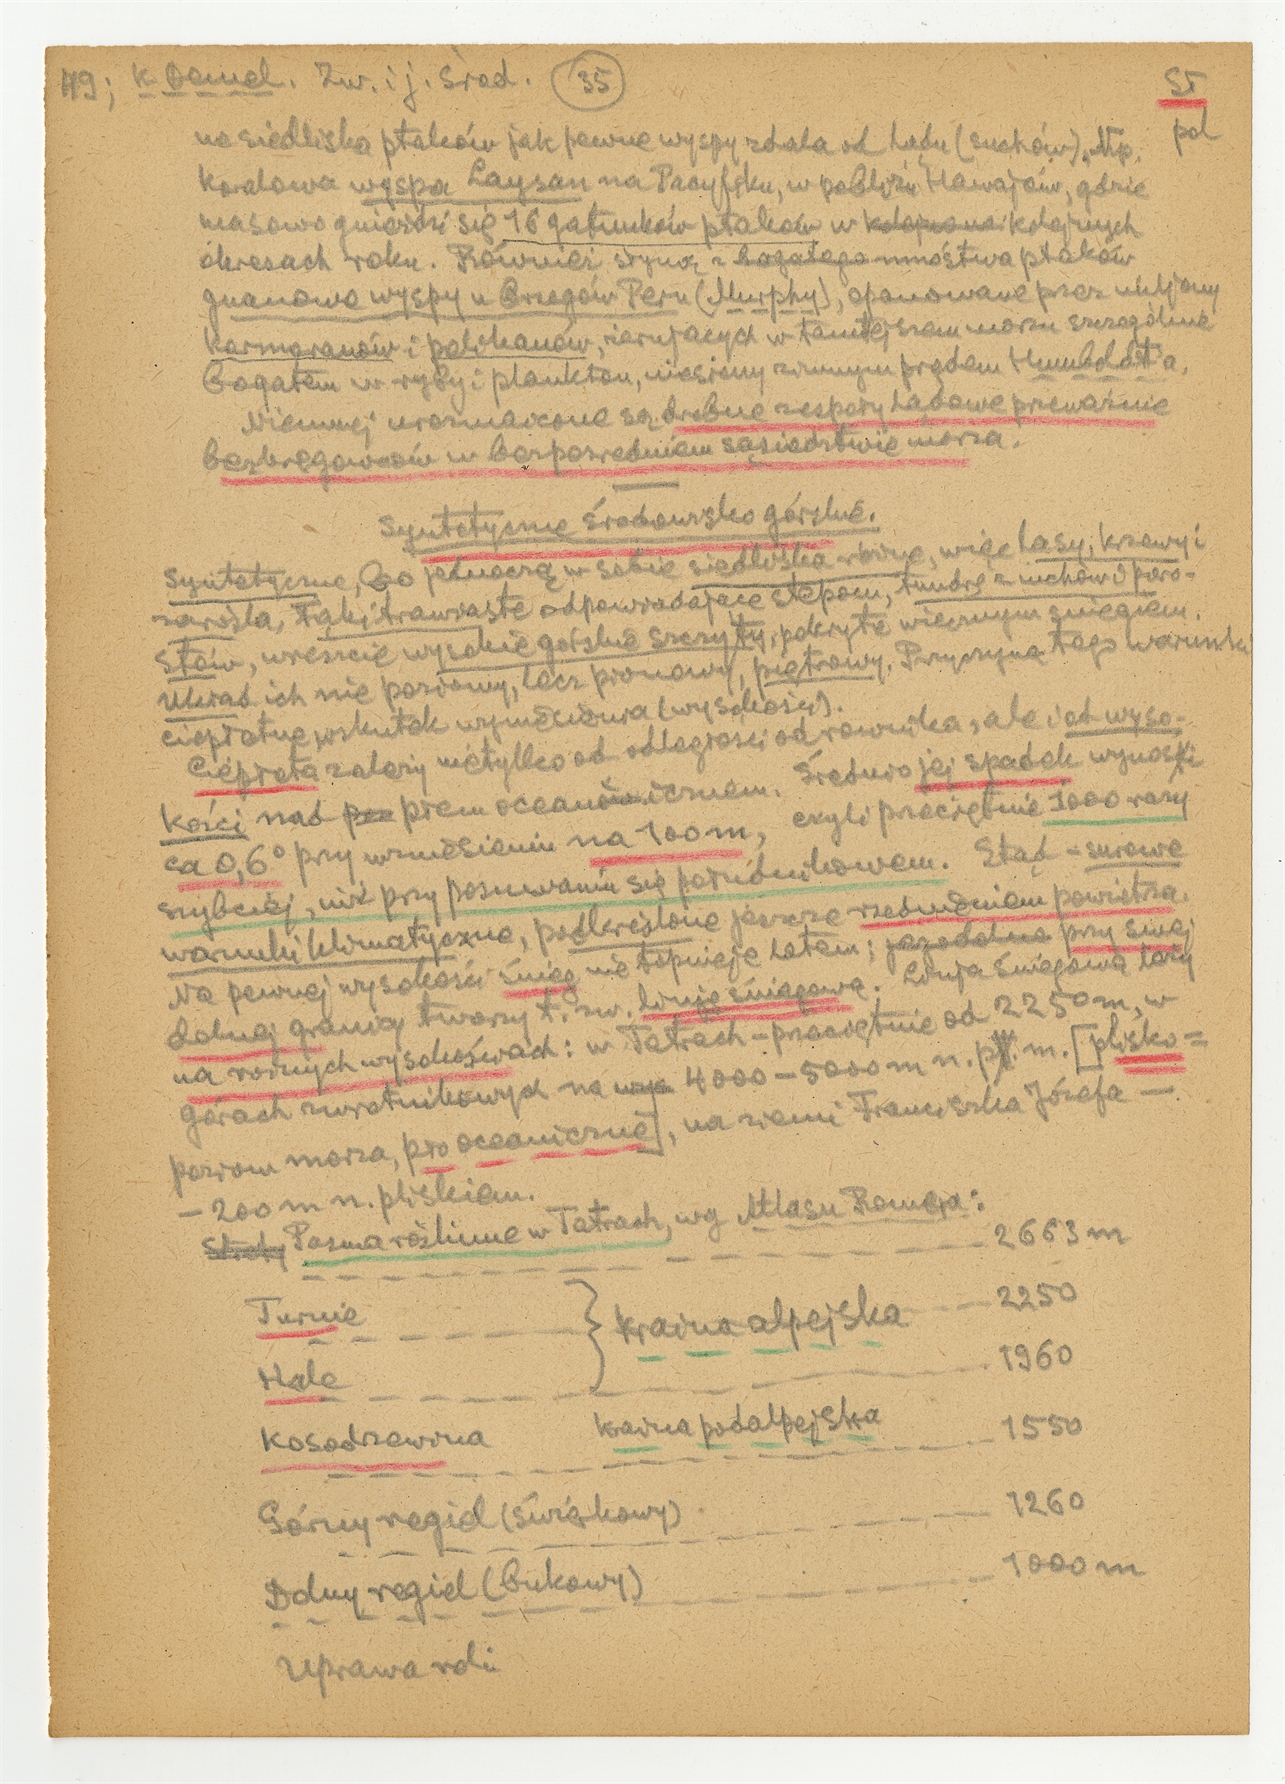 49; K. Demel. Zw. i j. środ. (35) ST
pol
na siedliska ptaków jak pewne wyspy zdala od Lądu (suchów), Np.
Koralowa wyspa Laysan na Pacyfiku, w pobliżu Hawajów, gdzie
masowo gnieździ się 16 gatunków ptaków w kolejnych
okresach roku. Również słyną z bogatego mnóstwa ptaków
guanowe wyspy u Brzegów Peru (Murphy), opanowane przez miljony
Kormoranów i pelikanów, żerujących w tamtejszem morzu szczególnie
Bogatem w ryby i plankton, niesiony zimnym prądem Humboldt'a.
Niemniej urozmaicone są drobne zespoły Lądowe przeważnie
bezkręgowców w bezpośredniem sąsiedztwie morza.
Syntetyczne środowisko górskie.
Syntetyczne, Bo jednoczą w sobie siedliska różne, więc lasy, krzewy i
zarośla, łąki trawiaste odpowiadające stepom, tundrę z mchów i poro-
stów, wreszcie wysokie górskie szczyty, pokryte wiecznym śniegiem.
Układ ich nie poziomy, lecz pionowy, piętrowy. Przyczyną tego warunki
cieplotne wskutek wyniesienia (wysokości).
Ciepłota zależy nietylko od odległości od równika, ale i od wyso-
kości nad pzo ptem oceanicznem. Średnio jej spadek wynosi
ca 0,6° przy wzniesieniu na 100 m, czyli przeciętnie 1000 razy
szybciej, niż przy posuwaniu się południkowem. Stąd - surowe
warunki klimatyczne, podkreślone jeszcze rzednieniem powietrza.
Na pewnej wysokości śnieg nie topnieje Latem; przy swej
dolnej granicy tworzy t. zw. linję śniegową. Linja śniegowa leży
na różnych wysokościach: w Tatrach - przeciętnie od 2250 m, w
górach zwrotnikowych na wys 4000 - 5000 m n. p. m. [plisko =
poziom morza, pło oceaniczne], na ziemi Franciszka Józefa —
- 200 m n. pliskiem.
Strefy Pasma roślinne w Tatrach, wg Atlasu Romera:
2663 m
Turnie
} kraina alpejska 2250
Hale 1960
Kosodrzewina kraina podalpejska 1550
Górny regiel (świerkowy) 1260
Dolny regiel (bukowy) 1000 m
Uprawa roli